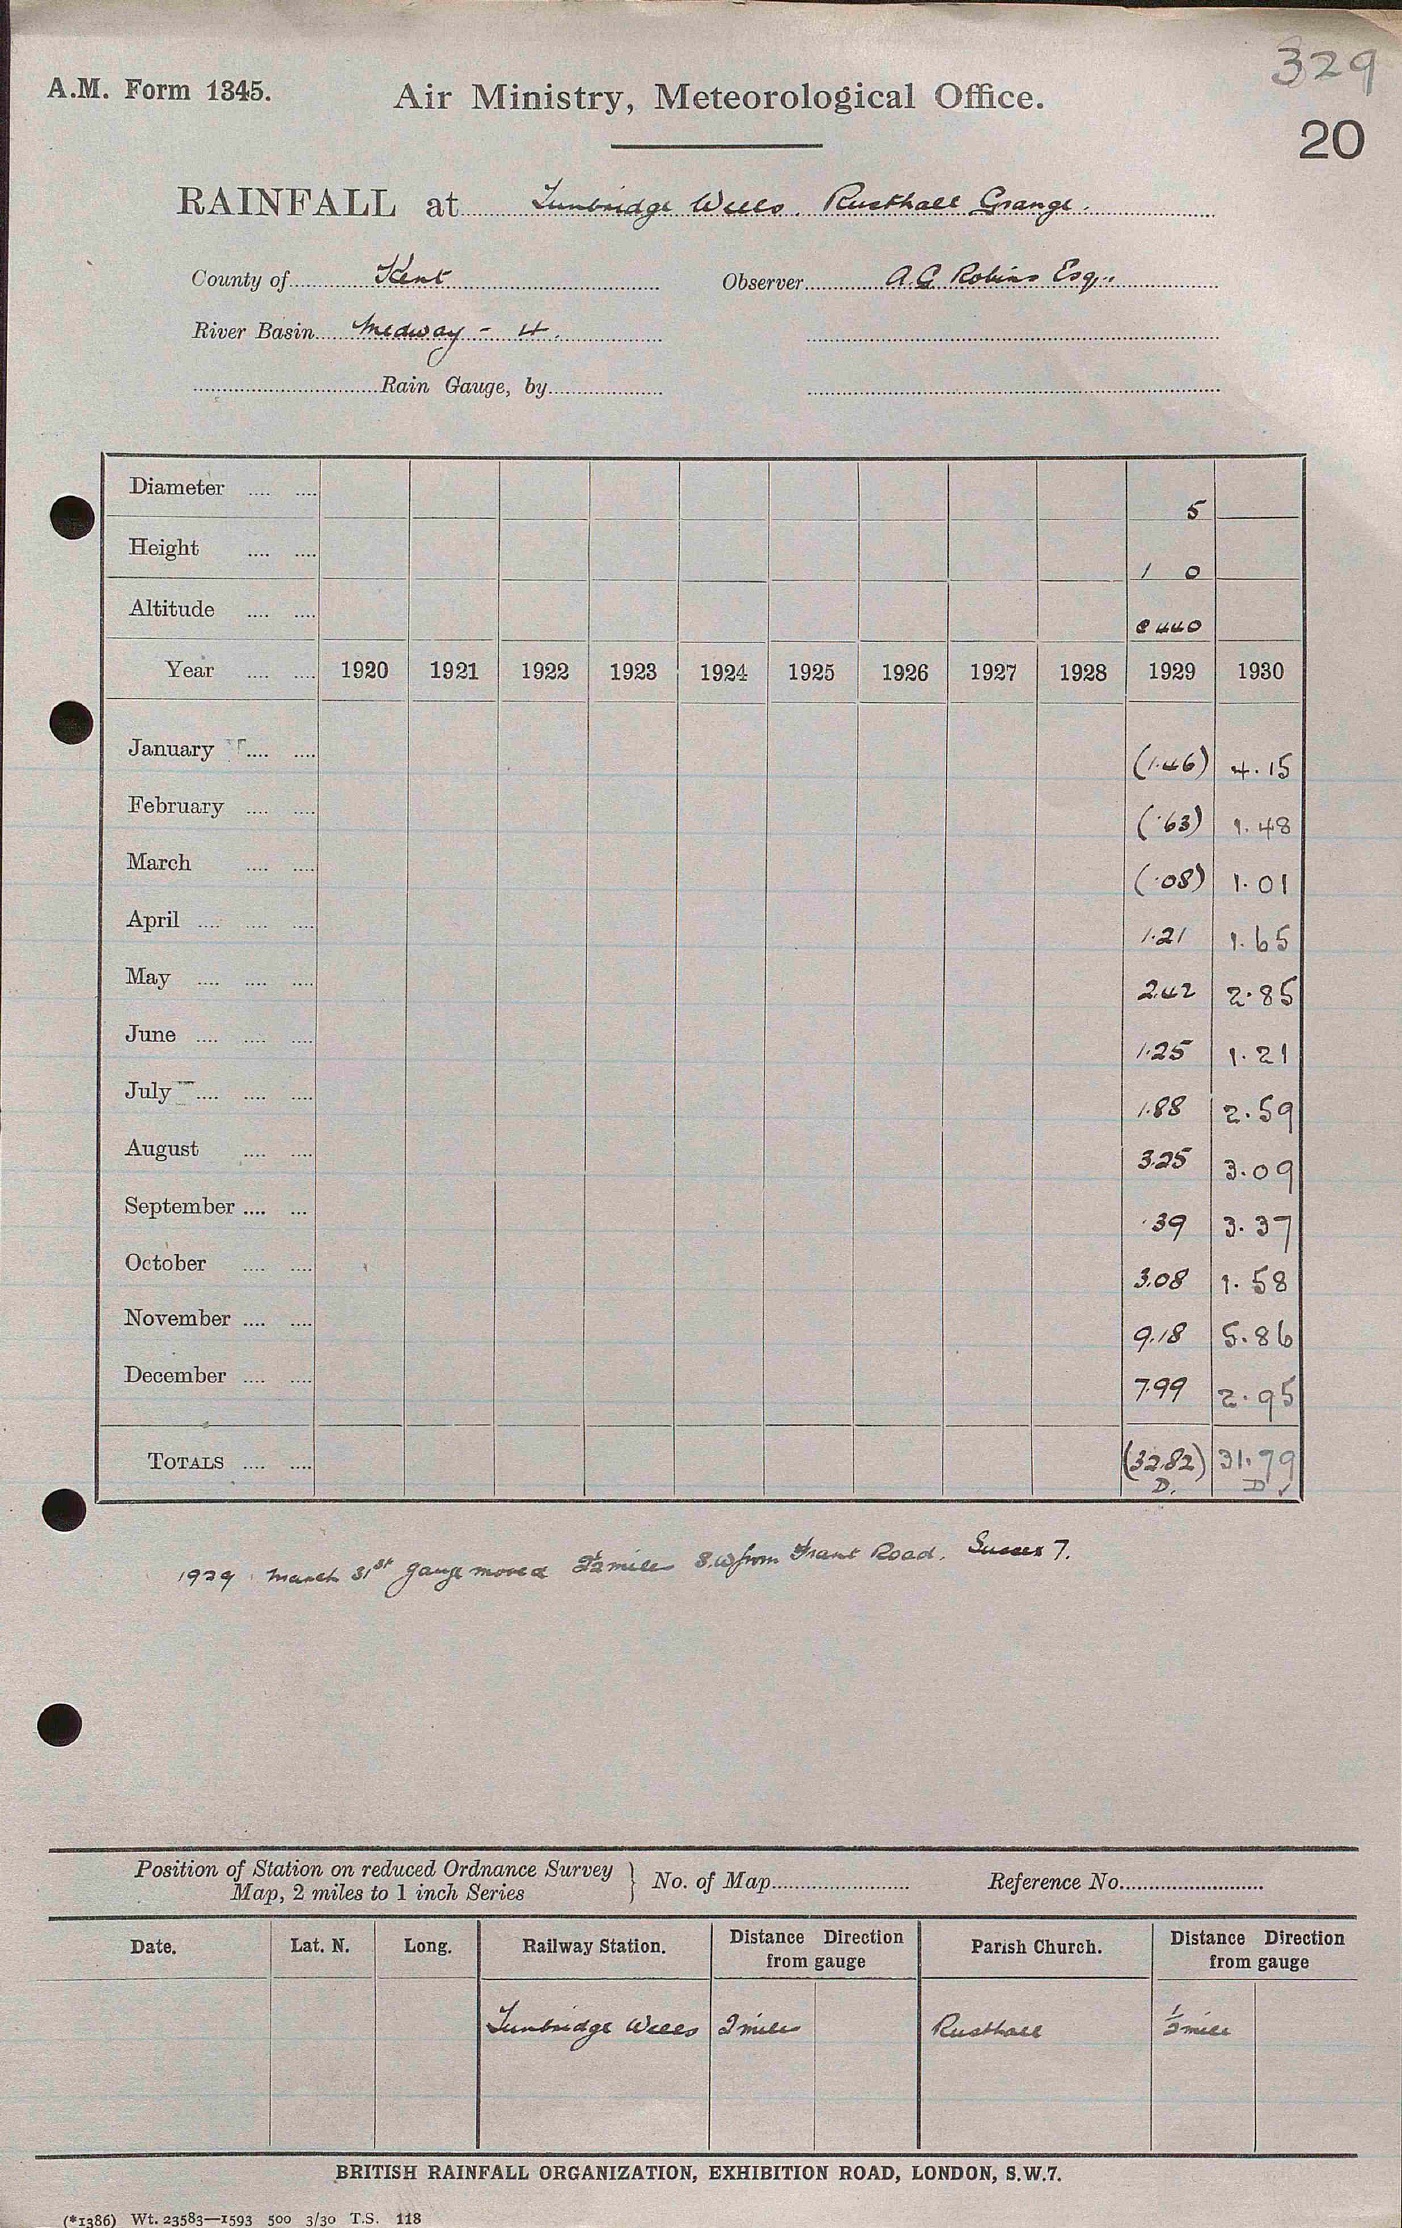 329
A.M. Form 1345.
Air Ministry, Meteorological Office.
20
RAINFALL at Tunbridge Wells. Rusthall Grange.
County of Kent Observer A.G Robins Esq.
River Basin Medway - 4.
Rain Gauge, by
Diameter .... .... 5
Height .... .... 1 0
Altitude .... .... 440
Year .... .... 1920 1921 1922 1923 1924 1925 1926 1927 1928 1929 1930
January .... .... (1.46) 4.15
February .... .... (.63) 1.48
March .... .... (.08) 1.01
April .... .... .... 1.21 1.65
May .... .... .... 2.42 2.85
June .... .... .... 1.25 1.21
July .... .... .... 1.88 2.59
August .... .... 3.25 3.09
September .... ... .39 3.37
October .... .... 3.08 1.58
November .... .... 9.18 5.86
December .... .... 7.99 2.95
TOTALS .... .... (32.82) 31.79
D. D ✓
1929 March 31st gauge moved 2½ miles S.W from Frant Road. Sussex 7.
Position of Station on reduced Ordnance Survey
Map, 2 miles to 1 inch Series } No. of Map Reference No.
Date. Lat. N. Long. Railway Station. Distance Direction from gauge Parish Church. Distance Direction from gauge
Tunbridge Wells 2 miles Rusthall ½ mile
BRITISH RAINFALL ORGANIZATION, EXHIBITION ROAD, LONDON, S.W.7.
(*1386) Wt. 23583—1593 500 3/30 T.S. 118